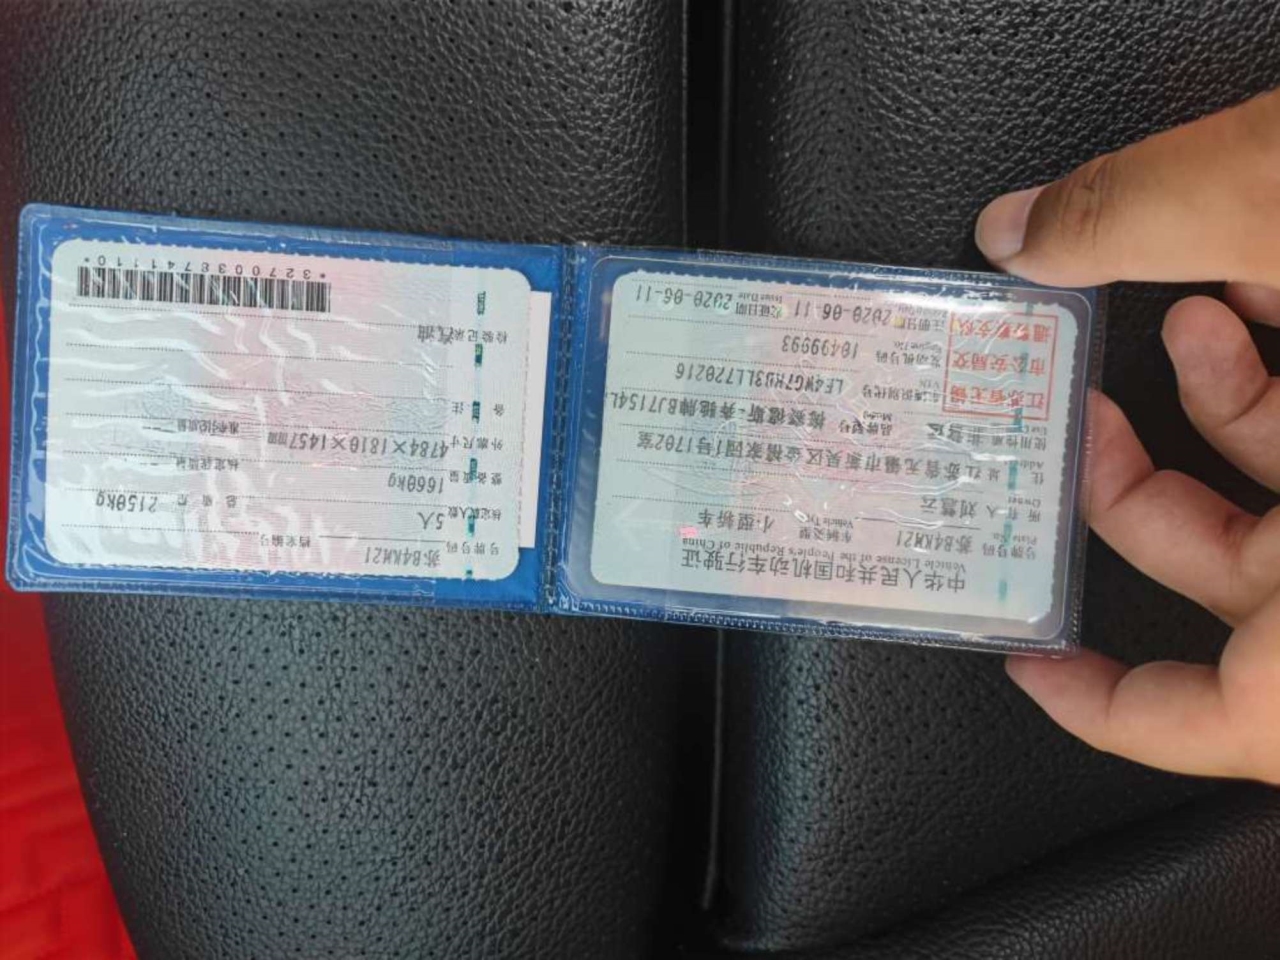 中华人民共和国机动车行驶证
Vehicle License of the People's Republic of China
号牌号码 苏B4KM21 车辆类型 小型轿车
Plate No. Vehicle Type
所有人 刘慧云
Owner
住址 江苏省无锡市新吴区金榜家园1号1702室
Addr.
使用性质 非营运 品牌型号 梅赛德斯-奔驰牌BJ7154L
车辆识别代号
VIN
发动机号码 10499993
Engine No.
注册日期 2020-06-11 发证日期 2020-06-11
Issue Date
江苏省无锡
市公安局交
通警察支队
号牌号码 苏B4KM21 档案编号
核定载人数 5人 总质量 2150kg
整备质量 1660kg 核定载质量 --
外廓尺寸 4784×1810×1457mm 准牵引总质量 --
备注
检验记录 汽油
*3270038741110*